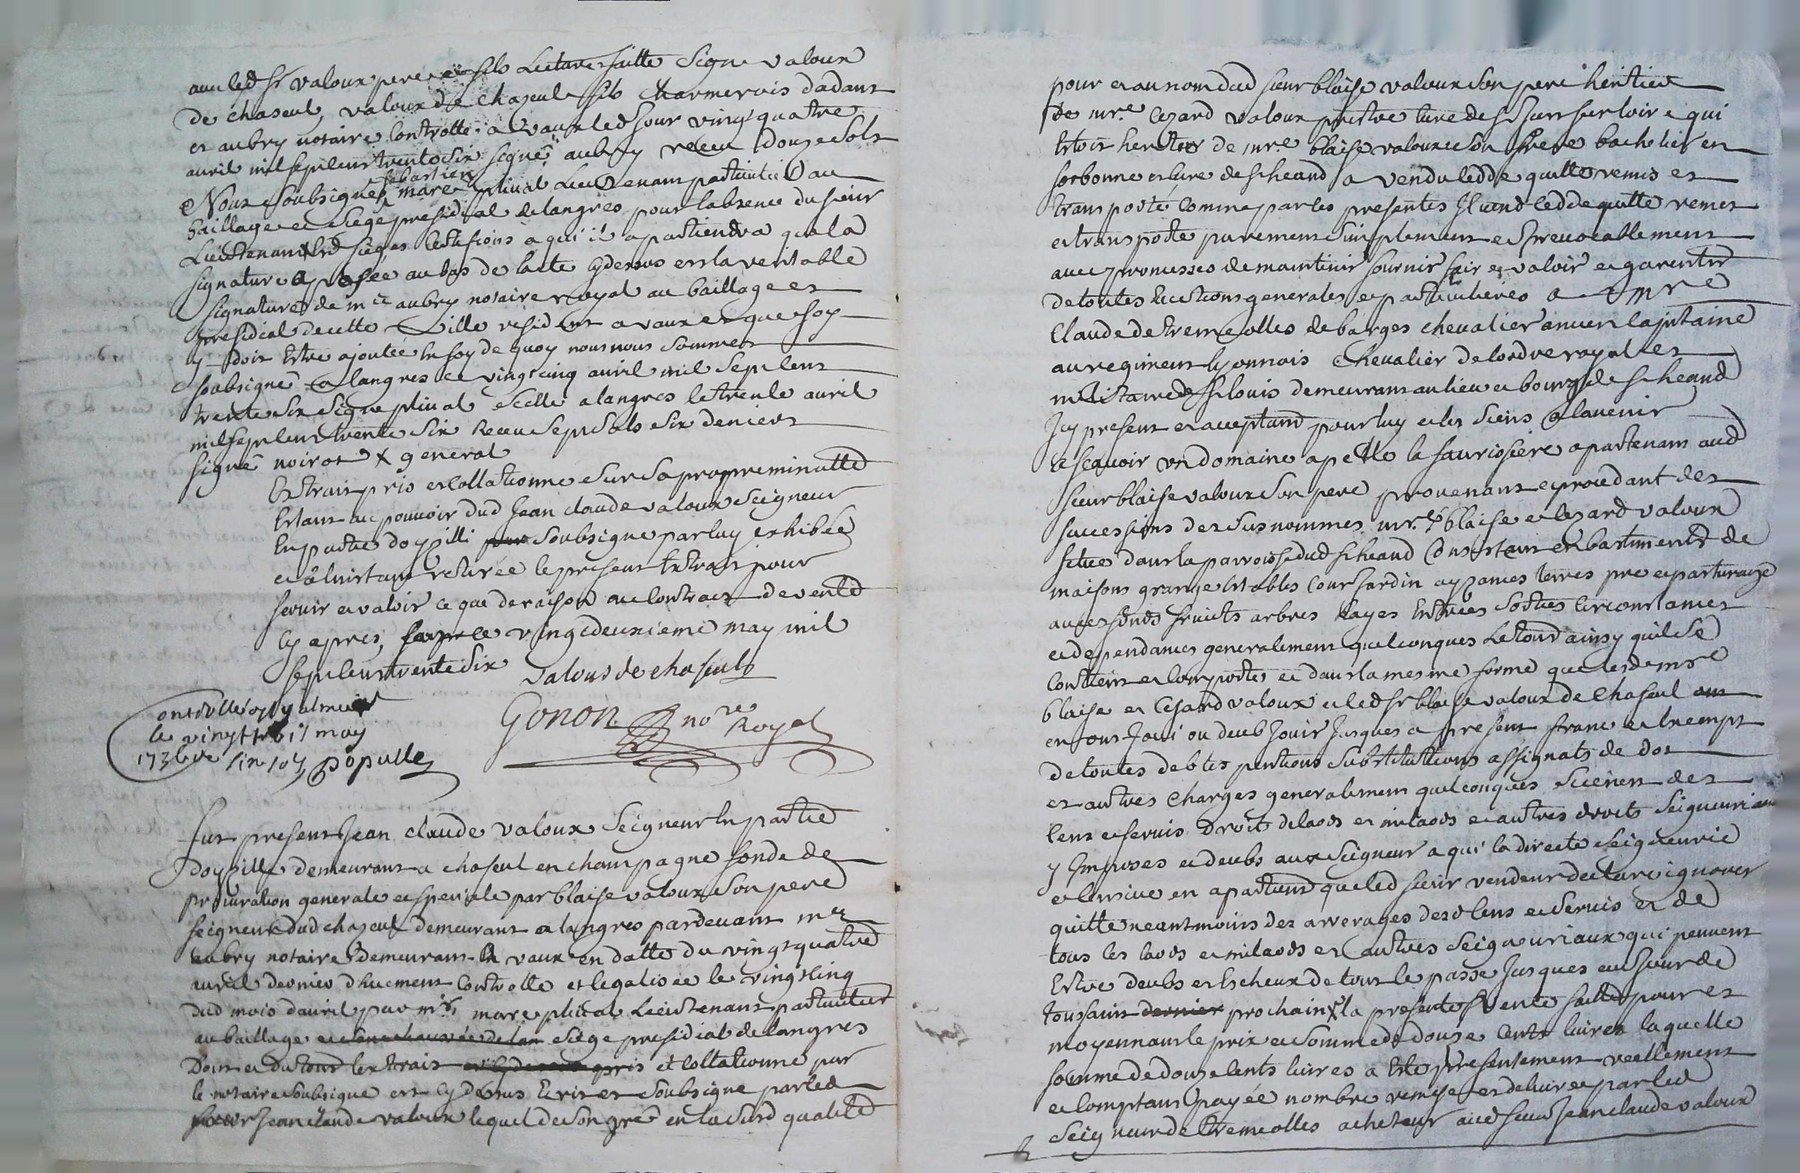 avec led Sr valoux pere et fils Lecture faitte Signe valoux
de chaseul, valoux de chaseul fils Charmerois dadant
et aubry notaire Controlle a vaux led Jour vingt quatre
avril mil sept cent trente Six signé aubry receu Douze Sols
Nous Soubsignes Sebastien marc plivat Lieutenant particulier au
baillage et Siege presidial de langres pour labsence du sieur
Lieutenant Certifions a qui il apartiendra que la
signature aposée au bas de lacte cydessus est la veritable
signature de me aubry notaire royal au baillage et
presidial de cette Ville resident a vaux et que foy
y doit Estre ajoutée En foy de quoy nous nous Sommes
soubsigné a langres ce vingt cinq avril mil Sept cent
trente Six Signe plivat Scellé a langres le trente avril
mil sept cent trente Six Receu Sept Sols Six deniers
signé noirot general
Extrait pris et Collationne Sur Sa propre minutte
Estant au pouvoir dud Jean claude valoux Seigneur
En partie doypilli Soubsigne par luy exhibée
et a linstant retirée le present Extrait pour
servir et valoir ce que de raison au Contract de vente
cy apres, ce vingt deuxieme may mil
sept cent trente Six valoux de chaseul
Gonon nore Royal
le vingt trois may
1736 populle
Fut present Jean claude valoux Seigneur En partie
doypilli demeurant a chaseul en champagne fondé de
procuration generale et speciale par blaise valoux Son pere
seigneur dud chaseul demeurant a langres pardevant me
aubry notaire demeurant a vaux en datte du vingt quatre
avril dernier dhuement Controllé et legalisée le vingt cinq
dud mois davril par me marc plivat Lieutenant particulier
au baillage Siege presidial de langres
Dont et du tout lextrait et Collationné par
le notaire Soubsigne est cy dessus Ecrit et Soubsigne par led
sieur Jean claude valoux lequel de Son gré en la Susd qualité
pour et au nom dud sieur blaise valoux Son pere heritier
de mre Cezard valoux prestre Curé de St Jean sur loire qui
Estoit heritier de mre blaise valoux Son frere bachelier en
sorbonne et Curé de St heand a vendu cedde quitte remis et
transporté Comme par les presentes Il vend cedde quitte remet
et transporte purement Simplement et Irrevocablement
avec promesses de maintenir fournir fair et valoir et garentir
de toutes Evictions generales et particulieres a mre
Claude de tremeolles de barges chevalier ancien Capitaine
au regiment Lyonnois Chevalier de lordre royal et
militaire de St louis demeurant au lieu et bourg de St heand
Icy present et acceptant pour luy et les Siens a lavenir
scavoir un domaine apellé la sauriosiere apartenant aud
sieur blaise valoux Son pere provenant et procedant des
successions des susnommes mres blaise et Cezard valoux
situé dans la parroisse dud St heand Consistant en bastiments de
maisons grange Estables Cour Jardin aysances terres pre et pasturage
avec ses fonds fruits arbres hayes Entrées Sorties circonstances
et dependances generalement quelconques Le tout ainsy quil Se
Contient et Comporte et dans la mesme forme que lesd mre
blaise et Cezard valoux et led Sr blaise valoux de chaseul
en ont Joui ou deub Jouir Jusques a present franc et Exempt
de toutes debtes pentions Substitutions assignats de dot
et autres charges generalement quelconques Si ce nest des
Cens et servis Droits de laods et milaods et autres droits Seigneuriaux
y Imposes et deubs aux Seigneur a qui la directe Seigneurie
et Censive en apartient que led sieur vendeur declare ignorer
quitte neantmoins des arrerages desd Cens et Servis et de
tous les laods et milaods et autres Seigneuriaux qui peuvent
Estre deubs et Escheux de tout le passé Jusques au Jour de
toussaint prochain la presente vente faitte pour et
moyennant le prix et Somme de douze Cents livres laquelle
somme de douze Cents livres a Esté presentement reellement
et Comptant payée nombré remise et delivrée par led
Seigneur de tremeolles acheteur aud sieur Jean claude valoux